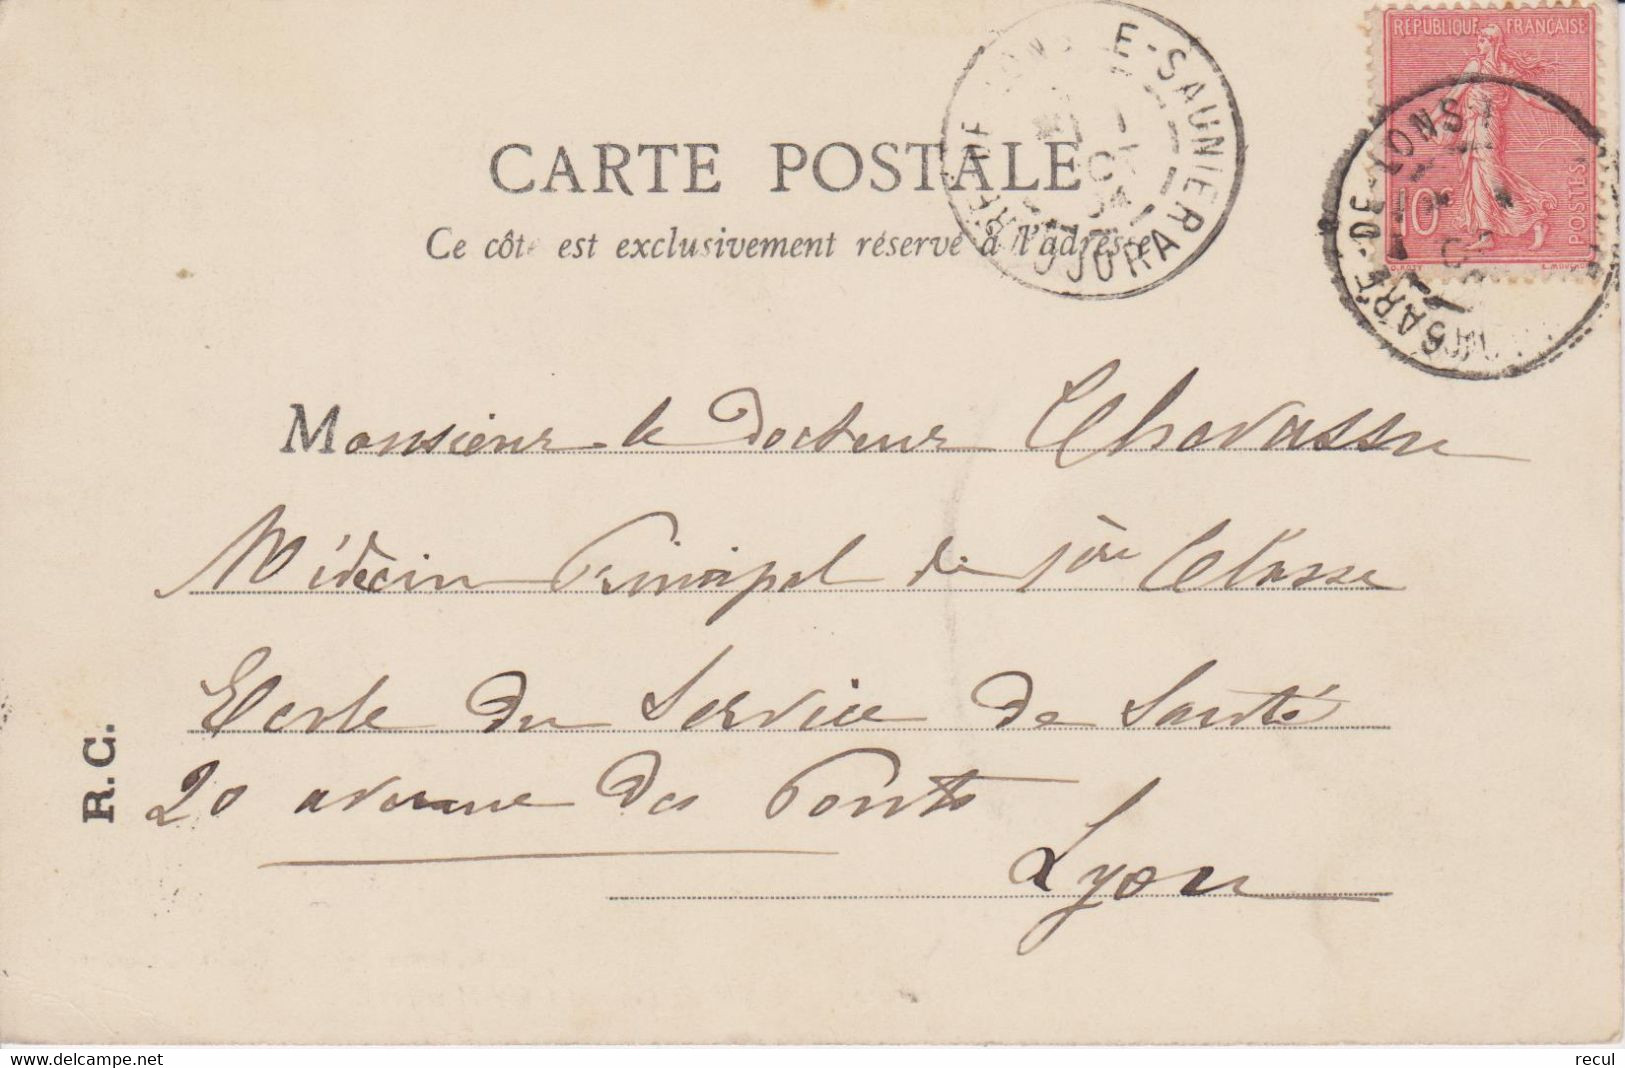 RÉPUBLIQUE FRANÇAISE
10c
POSTES
E-SAUNIER
JURA
GARE-DE-LONS
CARTE POSTALE
Ce côté est exclusivement réservé à l'adresse
Monsieur le Docteur
Médecin Principal de 1ère Classe
Ecole du Service de Santé
20 avenue des Ponts
Lyon
R.C.
www.delcampe.net
recul